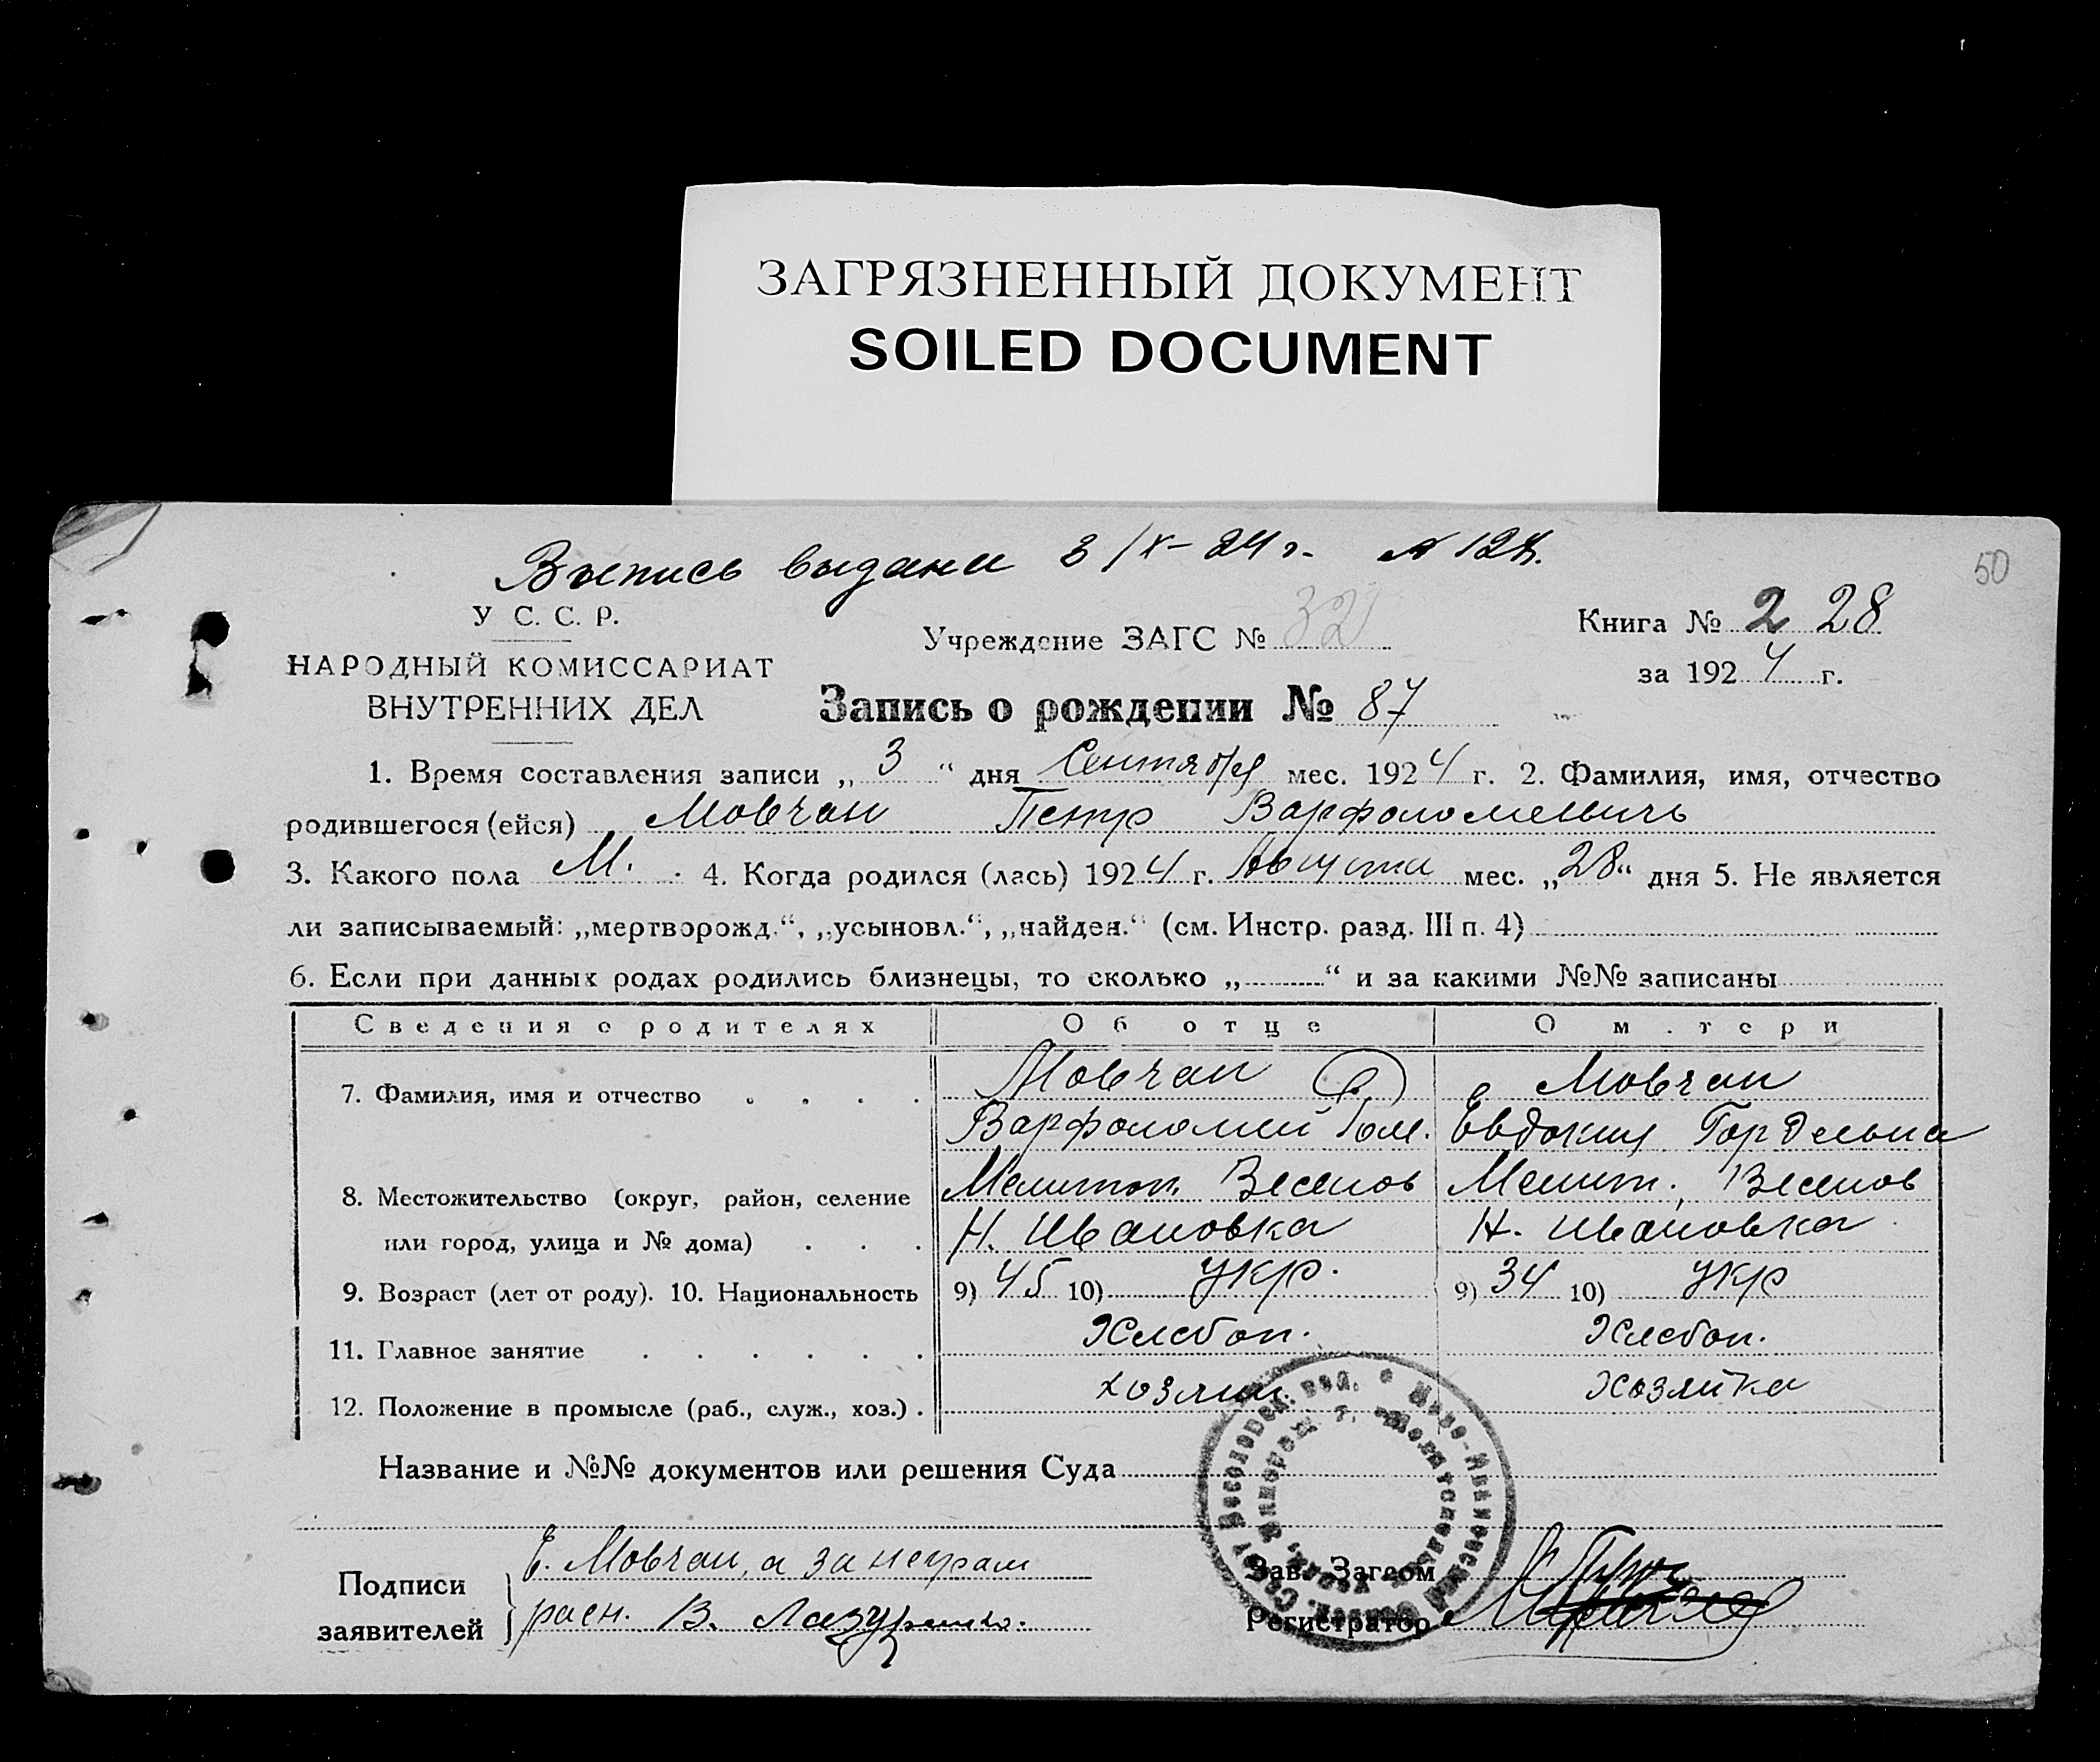 ЗАГРЯЗНЕННЫЙ ДОКУМЕНТ
SOILED DOCUMENT
50
Выпись выдана 3/IX-24 г. №
У С. С. Р.
НАРОДНЫЙ КОМИССАРИАТ
ВНУТРЕННИХ ДЕЛ
Учреждение ЗАГС № 32
Книга № 2 28
за 1924 г.
Запись о рождении № 87
1. Время составления записи „ 3 “ дня Сентября мес. 1924 г. 2. Фамилия, имя, отчество
родившегося (ейся) Мовчан Петр Варфоломеевичь
3. Какого пола М. 4. Когда родился (лась) 1924 г. Августа мес. „28“ дня 5. Не является
ли записываемый: „мертворожд.“, „усыновл.“, „найден.“ (см. Инстр. разд. III п. 4)
6. Если при данных родах родились близнецы, то сколько „ “ и за какими №№ записаны
Сведения о родителях Об отце О матери
7. Фамилия, имя и отчество Мовчан Мовчан
Варфоломей Евдокия Гордеевна
8. Местожительство (округ, район, селение Мелитоп. Веселов Мелит. Веселов
или город, улица и № дома) Н. Ивановка Н. Ивановка
9. Возраст (лет от роду). 10. Национальность 9) 45 10) укр. 9) 34 10) укр
11. Главное занятие Хлебоп. Хлебоп.
12. Положение в промысле (раб., служ., хоз.) хозяин Хозяйка
Название и №№ документов или решения Суда
Подписи
заявителей
Е. Мовчан, а за неграм
расп. В. Лазуренко.
Зав. Загсом
Регистратор